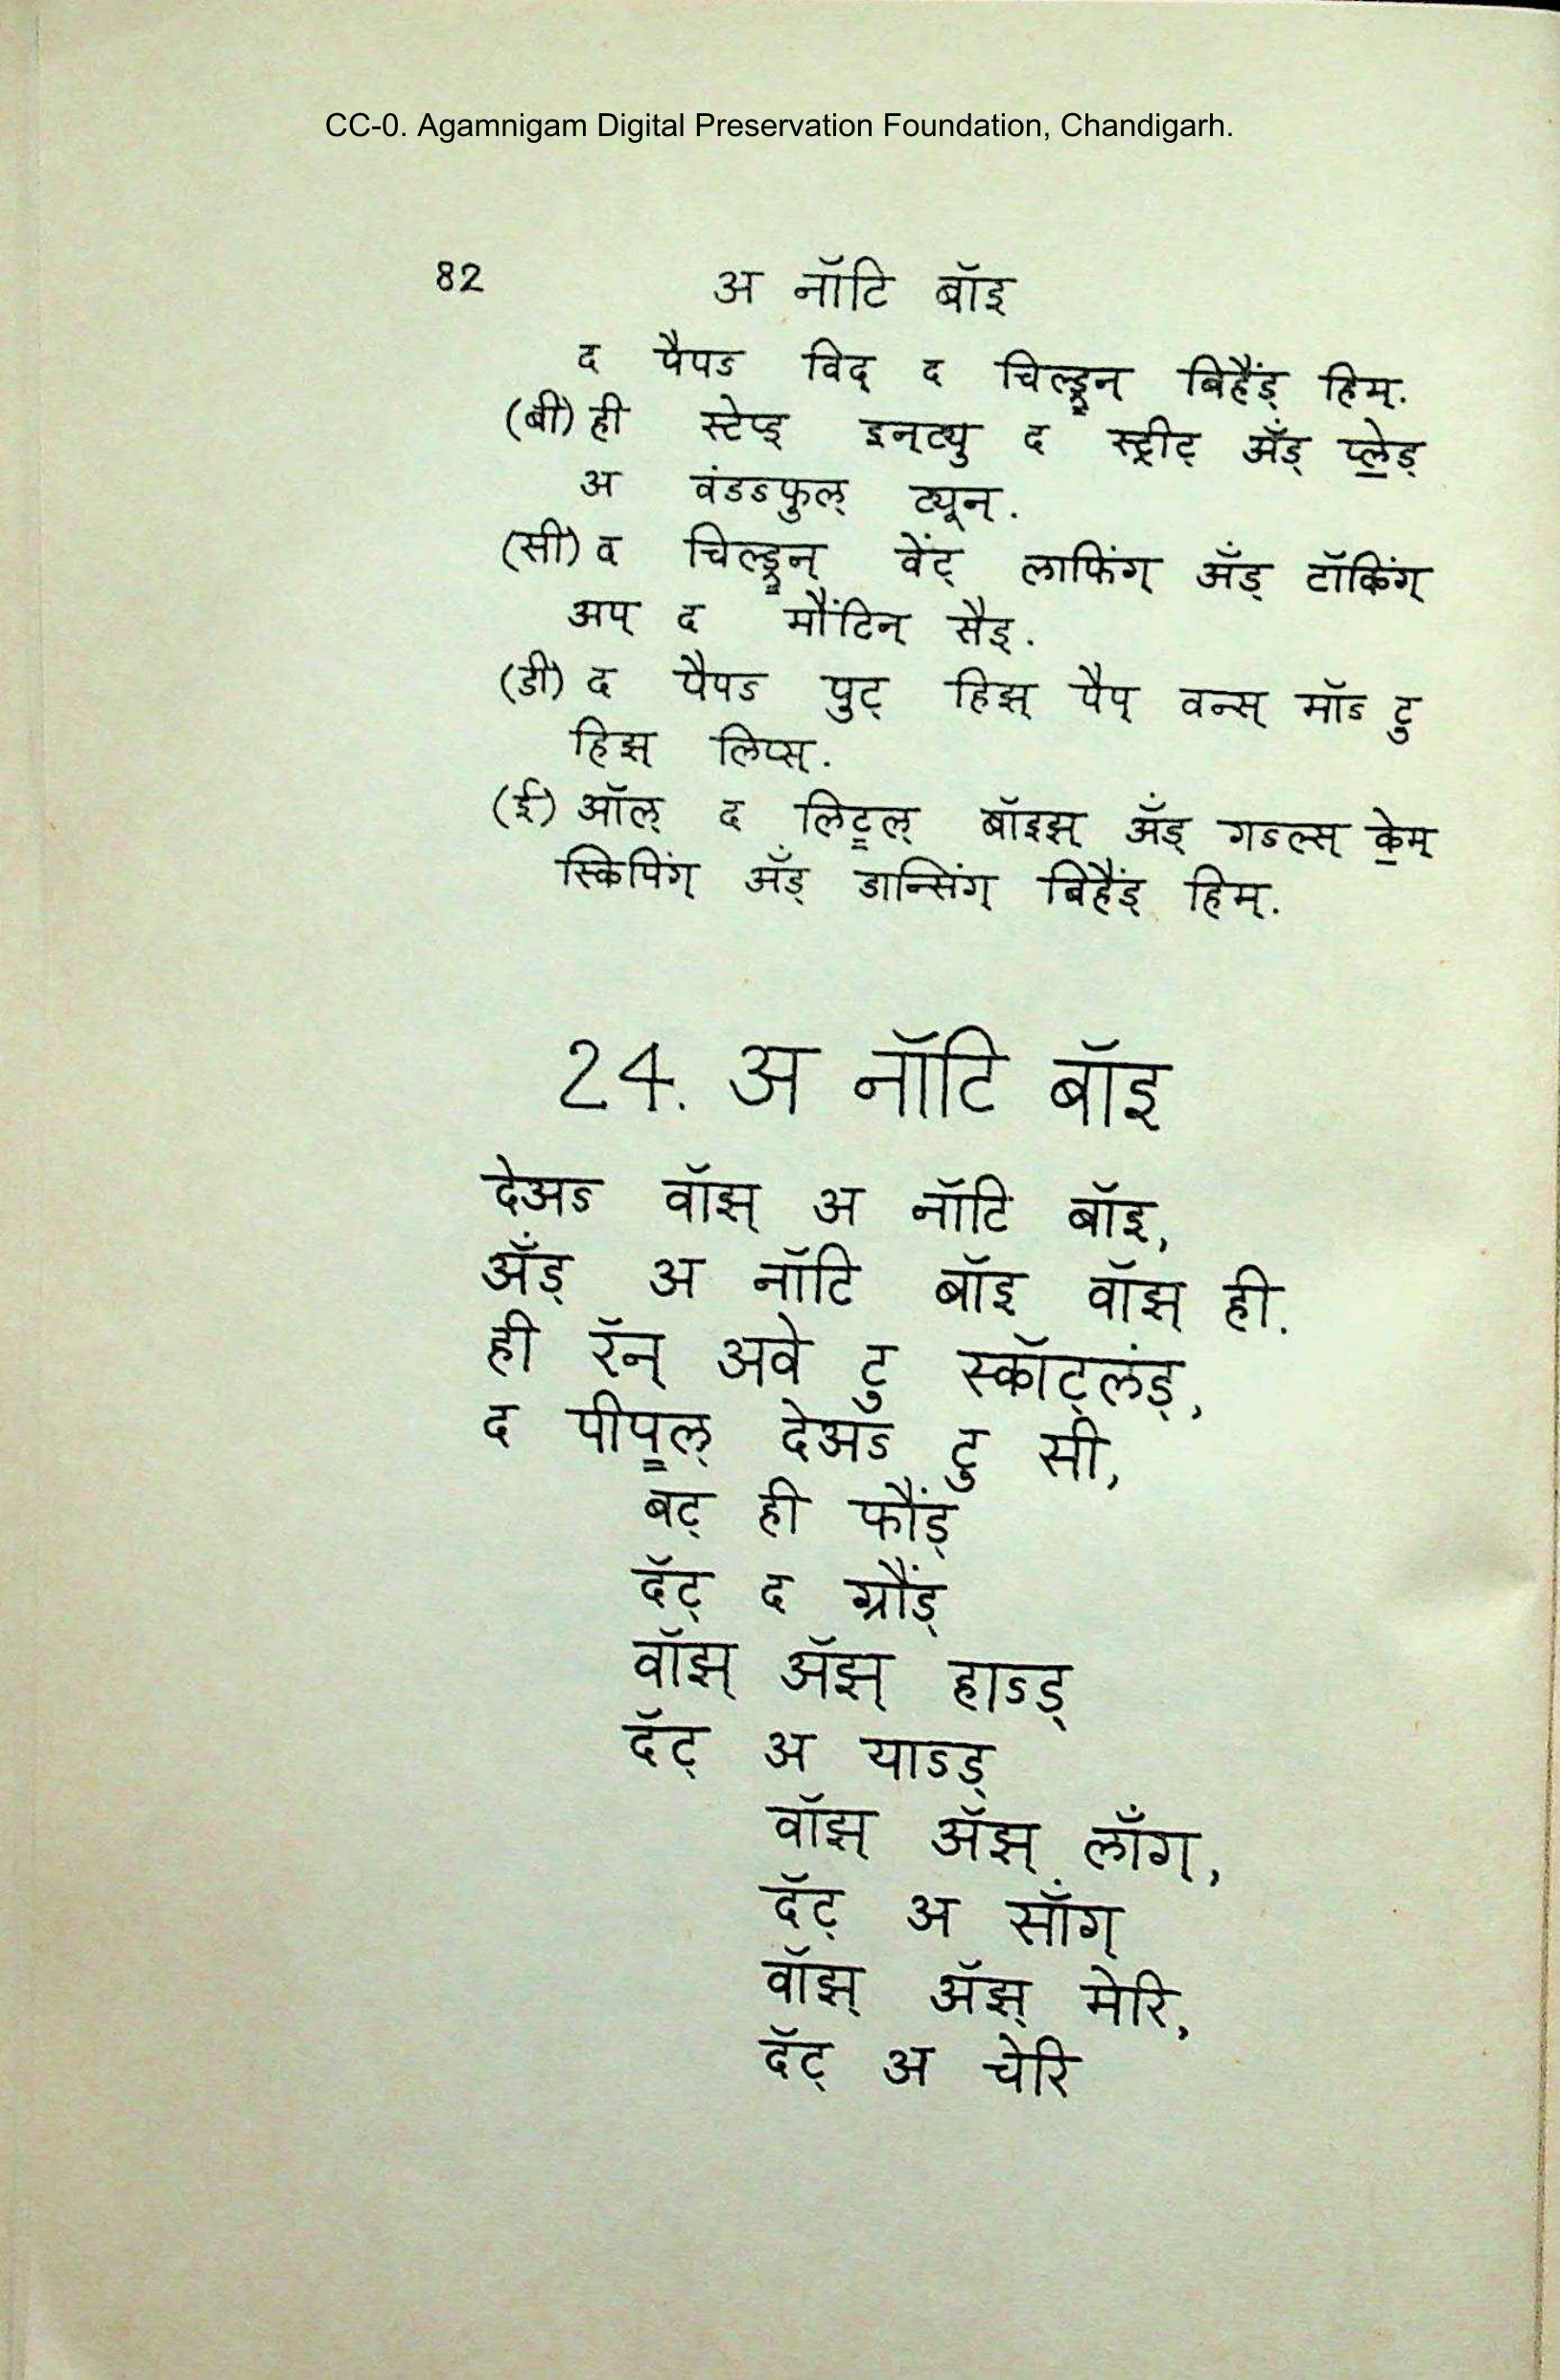 CC-0. Agamnigam Digital Preservation Foundation, Chandigarh.
82 अ नॉटि बॉइ
द पैपऽ विद् द चिल्ड्रन् बिहैंड् हिम्.
(बी) ही स्टेप्ड् इन्ट्यु द स्ट्रीट् ॲंड् प्लेड्
अ वंडऽफुल् ट्यून्.
(सी) द चिल्ड्रन् वेंट् लाफिंग् ॲंड् टॉकिंग्
अप् द मौंटिन् सैड्.
(डी) द पैपऽ पुट् हिझ् पैप् वन्स् मॉऽ टु
हिझ् लिप्स्.
(ई) ऑल् द लिट्ल् बॉइझ् ॲंड् गऽल्स् केम्
स्किपिंग् ॲंड् डान्सिंग् बिहैंड् हिम्.
24. अ नॉटि बॉइ
देअऽ वॉझ् अ नॉटि बॉइ,
ॲंड् अ नॉटि बॉइ वॉझ् ही.
ही रॅन् अवे टु स्कॉट्लंड्,
द पीपल् देअऽ टु सी,
बट् ही फौंड्
दॅट् द ग्रौंड्
वॉझ् ॲझ् हाऽड्
दॅट् अ याऽड्
वॉझ् ॲझ् लॉंग्,
दॅट् अ सॉंग्
वॉझ् ॲझ् मेरि,
दॅट् अ चेरि